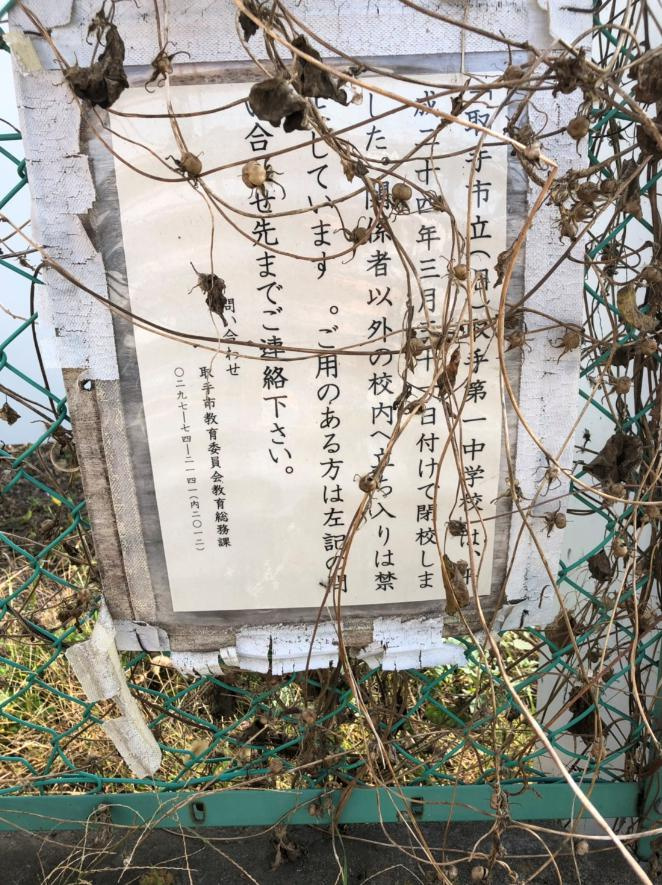 取手市立(旧)取手第一中学校は、平
成二十四年三月三十一日付けて閉校しま
した。関係者以外の校内へ立ち入りは禁
しています。ご用のある方は左記の問
合わせ先までご連絡下さい。
問い合わせ
取手市教育委員会教育総務課
〇二九七―七四―二一四一(内二〇一二)